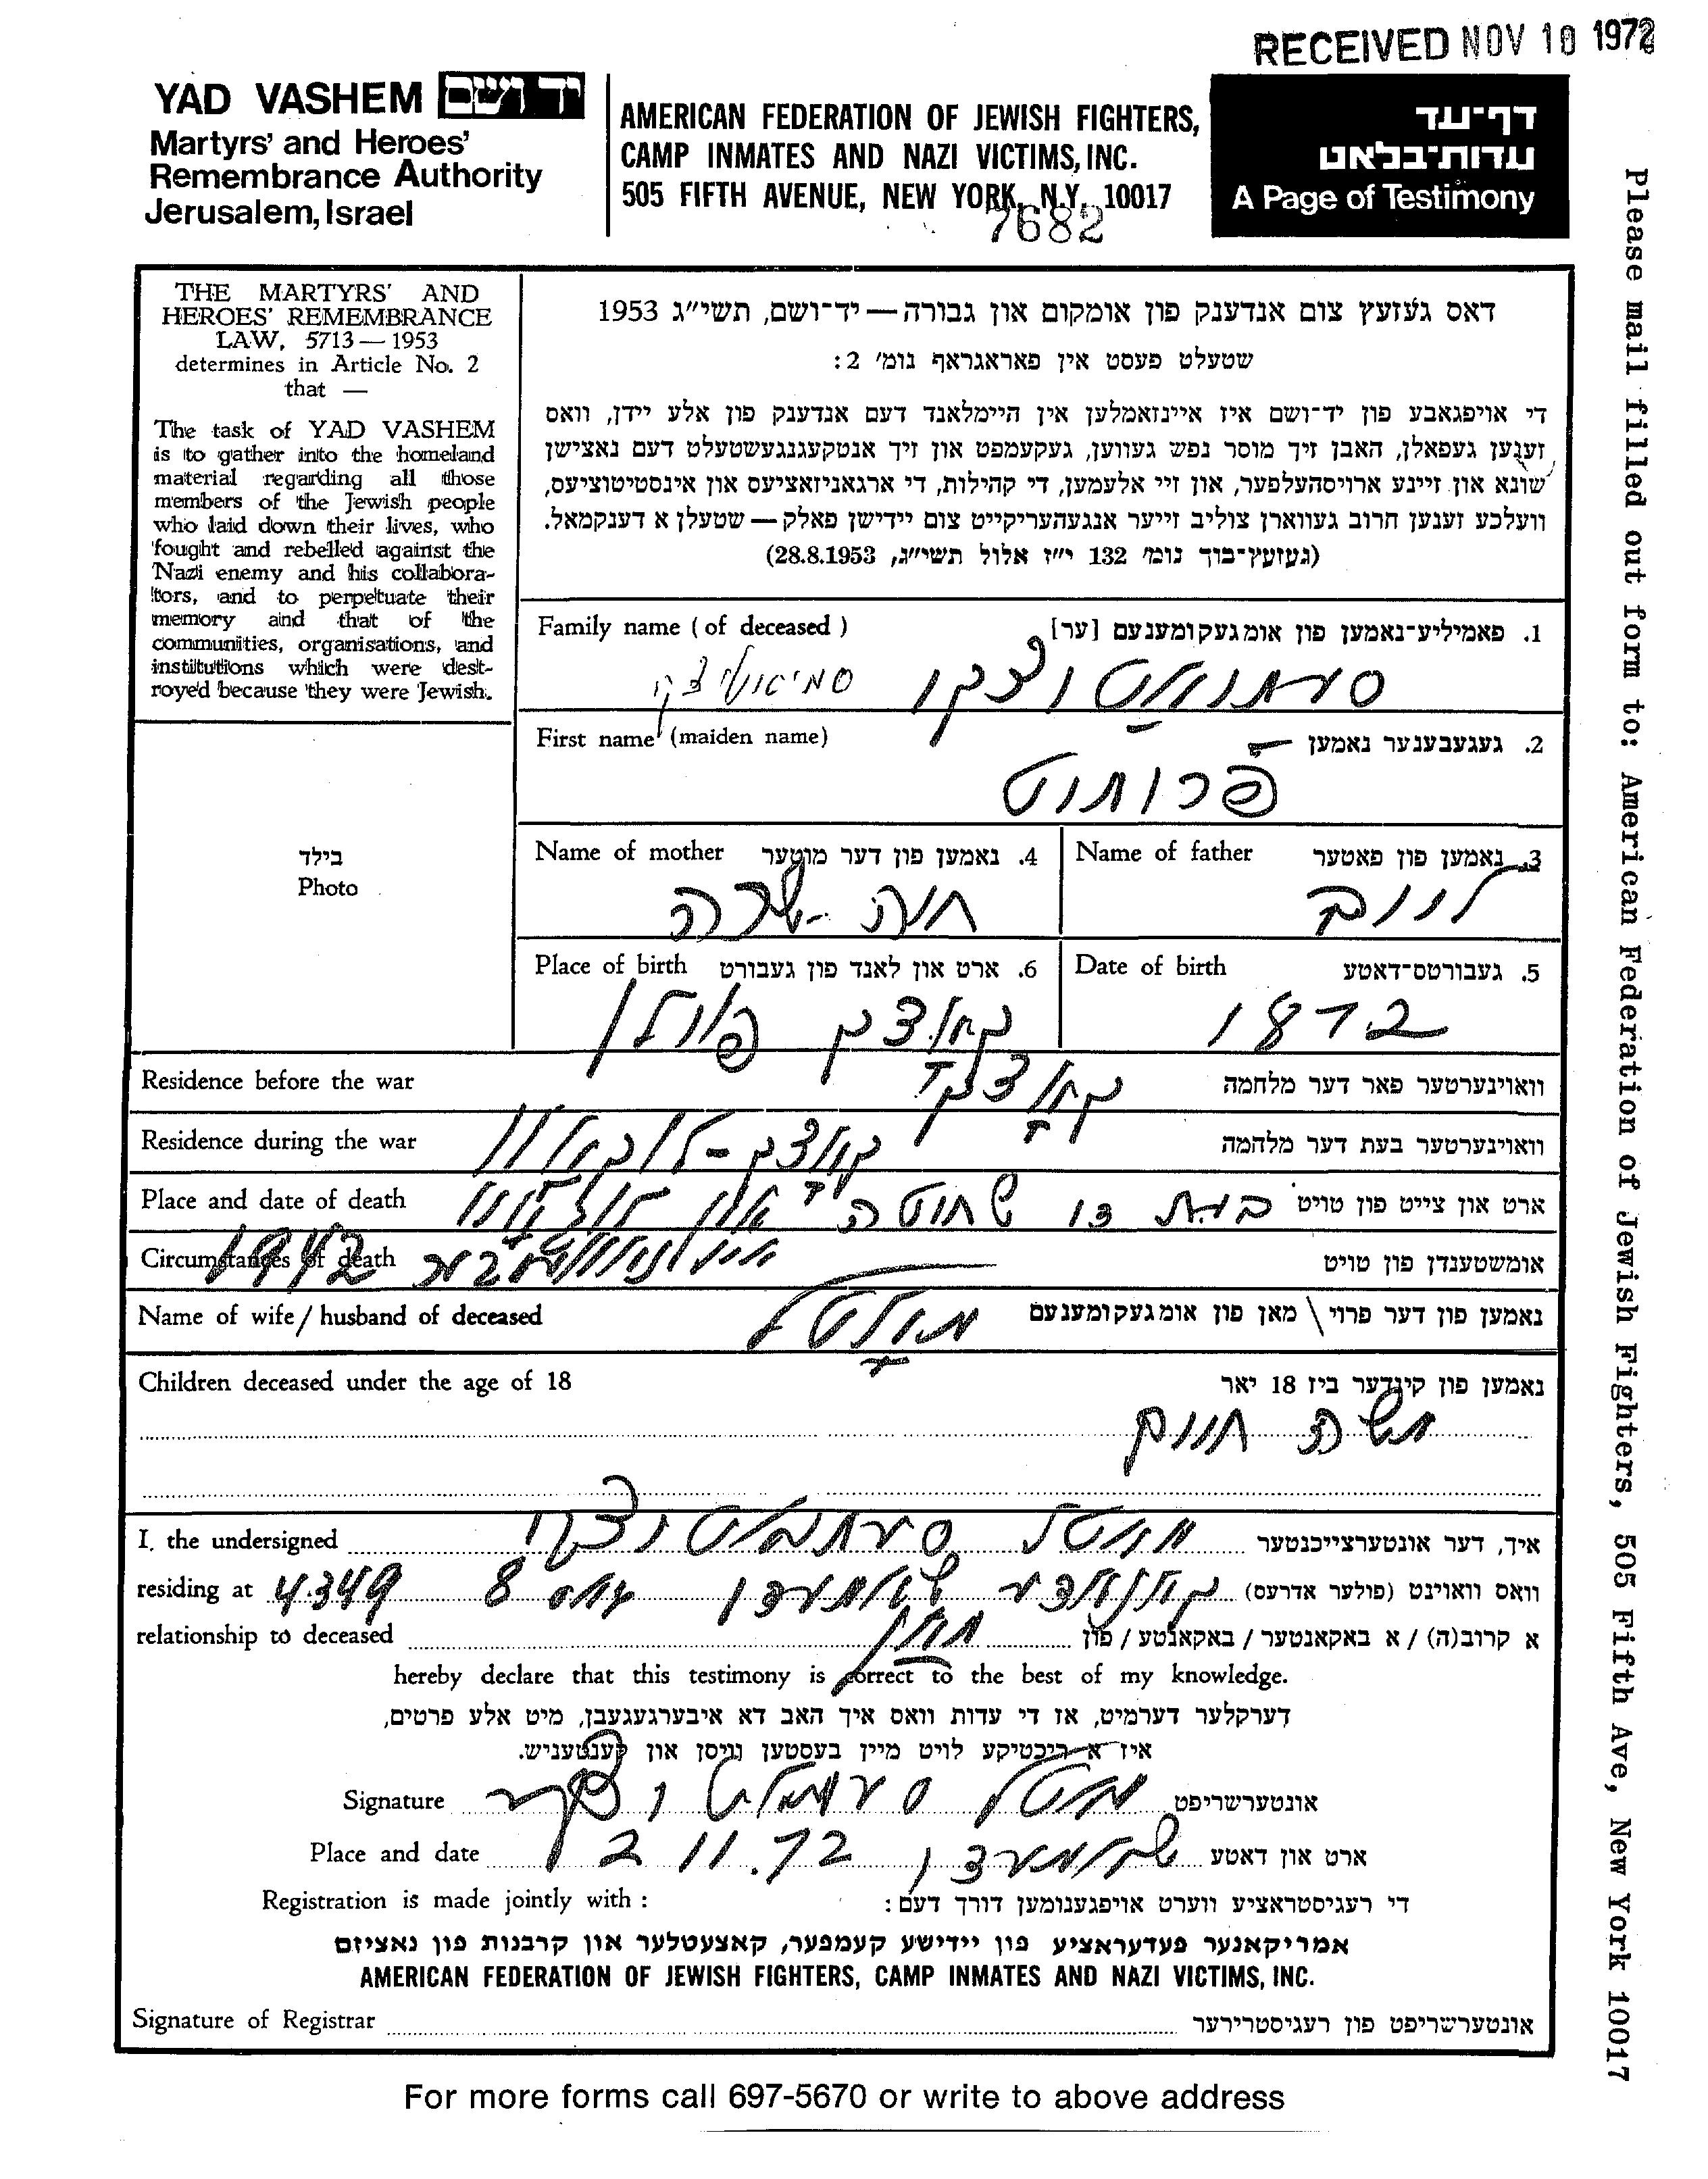 RECEIVED NOV 10 1972
YAD VASHEM יד ושם
Martyrs' and Heroes'
Remembrance Authority
Jerusalem, Israel
AMERICAN FEDERATION OF JEWISH FIGHTERS,
CAMP INMATES AND NAZI VICTIMS, INC.
505 FIFTH AVENUE, NEW YORK, N.Y. 10017
7682
דף־עד
עדות־בלאט
A Page of Testimony
Please mail filled out form to: American Federation of Jewish Fighters, 505 Fifth Ave, New York 10017
THE MARTYRS' AND
HEROES' REMEMBRANCE
LAW, 5713 — 1953
determines in Article No. 2
that —
The task of YAD VASHEM
is to gather into the homeland
material regarding all those
members of the Jewish people
who laid down their lives, who
fought and rebelled against the
Nazi enemy and his collabora-
tors, and to perpetuate their
memory and that of the
communities, organisations, and
institutions which were dest-
royed because they were Jewish.
דאס געזעץ צום אנדענק פון אומקום און גבורה — יד־ושם, תשי״ג 1953
שטעלט פעסט אין פאראגראף נומ׳ 2:
די אויפגאבע פון יד־ושם איז איינזאמלען אין היימלאנד דעם אנדענק פון אלע יידן, וואס
זענען געפאלן, האבן זיך מוסר נפש געווען, געקעמפט און זיך אנטקעגנגעשטעלט דעם נאצישן
שונא און זיינע ארויסהעלפער, און זיי אלעמען, די קהילות, די ארגאניזאציעס און אינסטיטוציעס,
וועלכע זענען חרוב געווארן צוליב זייער אנגעהעריקייט צום יידישן פאלק — שטעלן א דענקמאל.
(געזעץ־בוך נומ׳ 132 י״ז אלול תשי״ג, 28.8.1953)
Family name (of deceased) 1. פאמיליע־נאמען פון אומגעקומענעם [ער]
First name (maiden name) 2. געגעבענער נאמען
בילד
Photo
Name of father 3. נאמען פון פאטער
Name of mother 4. נאמען פון דער מוטער
חנה-שרה
Date of birth 5. געבורטס־דאטע
1872
Place of birth 6. ארט און לאנד פון געבורט
קאצק פוילן
Residence before the war וואוינערטער פאר דער מלחמה
קאצק
Residence during the war וואוינערטער בעת דער מלחמה
קאצק-לוקאוו
Place and date of death ארט און צייט פון טויט
Circumstances of death אומשטענדן פון טויט
1942
Name of wife / husband of deceased נאמען פון דער פרוי \ מאן פון אומגעקומענעם
Children deceased under the age of 18 נאמען פון קינדער ביז 18 יאר
משה חיים
I, the undersigned איך, דער אונטערצייכנטער
residing at וואס וואוינט (פולער אדרעס)
4349 8
relationship to deceased א קרוב(ה) / א באקאנטער / באקאנטע / פון
hereby declare that this testimony is correct to the best of my knowledge.
דערקלער דערמיט, אז די עדות וואס איך האב דא איבערגעגעבן, מיט אלע פרטים,
איז א ריכטיקע לויט מיין בעסטען וויסן און קענטעניש.
Signature אונטערשריפט
Place and date 2 11.72 ארט און דאטע
Registration is made jointly with : די רעגיסטראציע ווערט אויפגענומען דורך דעם :
אמריקאנער פעדעראציע פון יידישע קעמפער, קאצעטלער און קרבנות פון נאציזם
AMERICAN FEDERATION OF JEWISH FIGHTERS, CAMP INMATES AND NAZI VICTIMS, INC.
Signature of Registrar אונטערשריפט פון רעגיסטרירער
For more forms call 697-5670 or write to above address